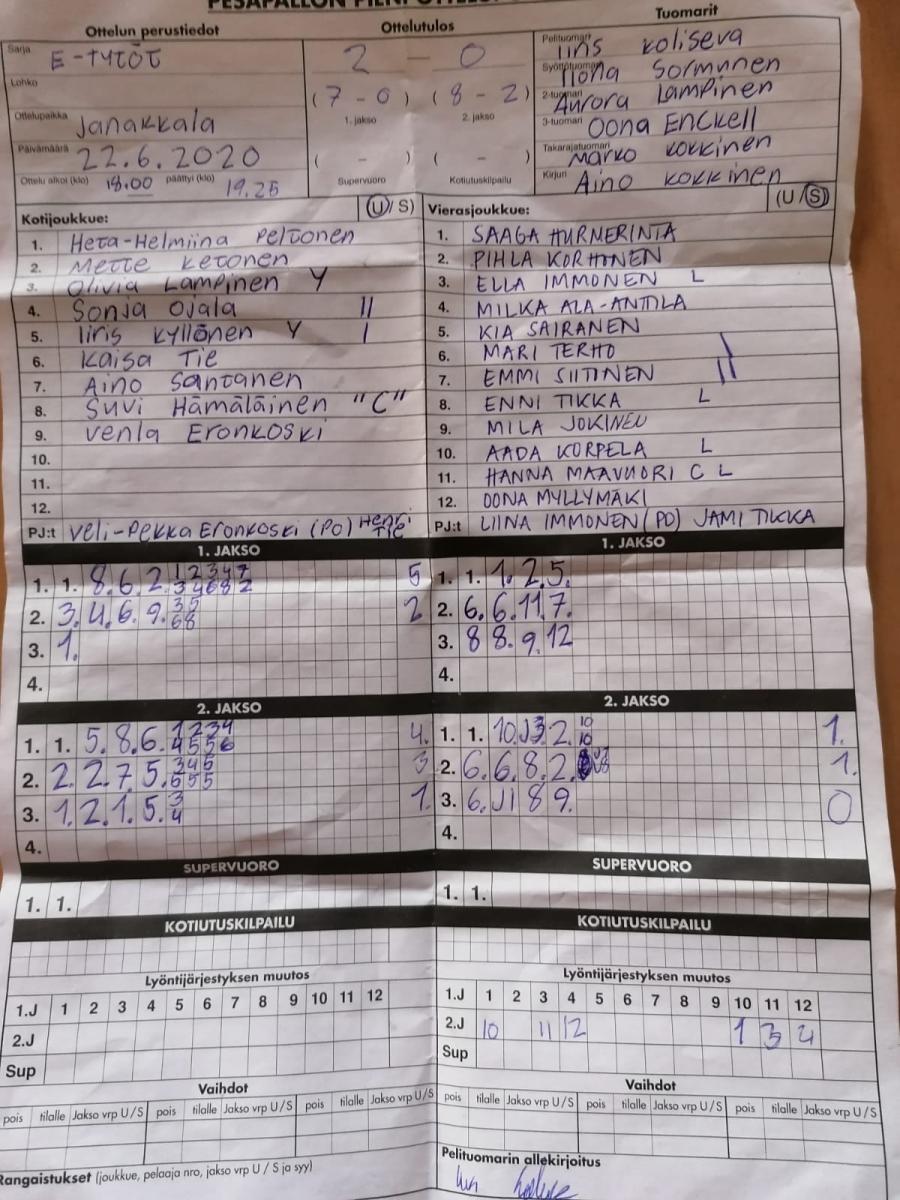 Ottelun perustiedot
Ottelutulos
Tuomarit
Sarja E-TYTÖT
Lohko
Ottelupaikka Janakkala
Päivämäärä 22.6.2020
Ottelu alkoi (klo) 18.00 päättyi (klo) 19.25
2 - 0
(7 - 0) (8 - 2)
1. jakso 2. jakso
( - ) ( - )
Supervuoro Kotiutuskilpailu
Pelituomari Iiris Koliseva
Syöttötuomari Ilona Sormunen
2-tuomari Aurora Lampinen
3-tuomari Oona Enckell
Takarajatuomari Marko Kokkinen
Kirjuri Aino Kokkinen
Kotijoukkue: (U/ S)
1. Heta-Helmiina Peltonen
2. Mette Ketonen
3. Olivia Lampinen Y
4. Sonja Ojala II
5. Iiris Kyllönen Y I
6. Kaisa Tie
7. Aino Santanen
8. Suvi Hämäläinen "C"
9. Venla Eronkoski
10.
11.
12.
PJ:t Veli-Pekka Eronkoski (PO) Henri Tie
Vierasjoukkue: (U / S)
1. SAAGA HURMERINTA
2. PIHLA KORHONEN
3. ELLA IMMONEN L
4. MILKA ALA-ANTILA
5. KIA SAIRANEN
6. MARI TERHO \
7. EMMI SIITINEN II
8. ENNI TIKKA L
9. MILA JOKINEN
10. AADA KORPELA L
11. HANNA MAAVUORI C L
12. OONA MYLLYMÄKI
PJ:t LIINA IMMONEN (PO) JAMI TIKKA
1. JAKSO
1. 1. 8. 6. 2. 1 2 3 4 7 5
3 4 6 8 2
2. 3. 4. 6. 9. 3 5 2
6 8
3. 1.
4.
1. JAKSO
1. 1. 1. 2. 5.
2. 6. 6. 11. 7.
3. 8 8. 9. 12
4.
2. JAKSO
1. 1. 5. 8. 6. 1 2 3 4 4.
4 5 5 6
2. 2. 2. 7. 5. 3 4 5 3
6 5 5
3. 1. 2. 1. 5. 3 1.
4
4.
2. JAKSO
1. 1. 10. 2. 10 1.
10
2. 6. 6. 8. 2. 1.
3. 6. 11 8 9. 0
4.
SUPERVUORO
1. 1.
SUPERVUORO
1. 1.
KOTIUTUSKILPAILU
KOTIUTUSKILPAILU
Lyöntijärjestyksen muutos
1.J 1 2 3 4 5 6 7 8 9 10 11 12
2.J
Sup
Lyöntijärjestyksen muutos
1.J 1 2 3 4 5 6 7 8 9 10 11 12
2.J 10 11 12 1 3 4
Sup
Vaihdot
pois tilalle Jakso vrp U / S pois tilalle Jakso vrp U / S pois tilalle Jakso vrp U / S
Vaihdot
pois tilalle Jakso vrp U / S pois tilalle Jakso vrp U / S pois tilalle Jakso vrp U / S
Rangaistukset (joukkue, pelaaja nro, jakso vrp U / S ja syy)
Pelituomarin allekirjoitus